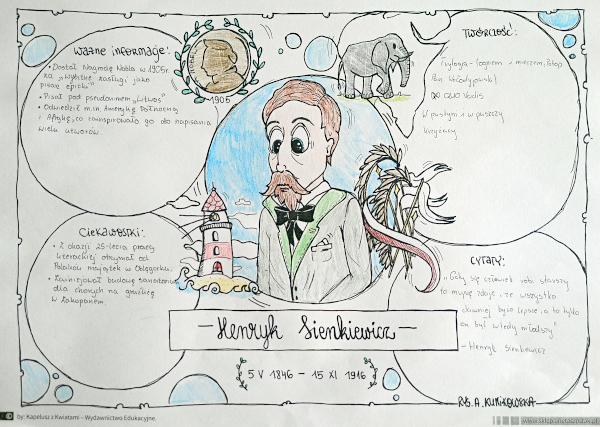 Ważne informacje:
• Dostał Nagrodę Nobla w 1905r.
za „wybitne zasługi jako
pisarz epicki"
• Pisał pod pseudonimem „Litwos"
• Odwiedził m.in. Amerykę Północną
i Afrykę, co zainspirowało go do napisania
wielu utworów.
1905
Twórczość:
Trylogia - Ogniem i mieczem, Potop
Pan Wołodyjowski
Quo Vadis
W pustyni i w puszczy
Krzyżacy
Ciekawostki:
• Z okazji 25-lecia pracy
literackiej otrzymał od
Polaków majątek w Oblęgorku.
• Zainicjował budowę sanatorium
dla chorych na gruźlicę
w Zakopanem.
Cytaty:
„Gdy się człowiek robi starszy
to mu się zdaje, że wszystko
dawniej było lepsze, a to tylko
on był wtedy młodszy"
- Henryk Sienkiewicz
- Henryk Sienkiewicz -
5 V 1846 - 15 XI 1916
Rys. A. Kunikowska
by: Kapelusz z Kwiatami - Wydawnictwo Edukacyjne.